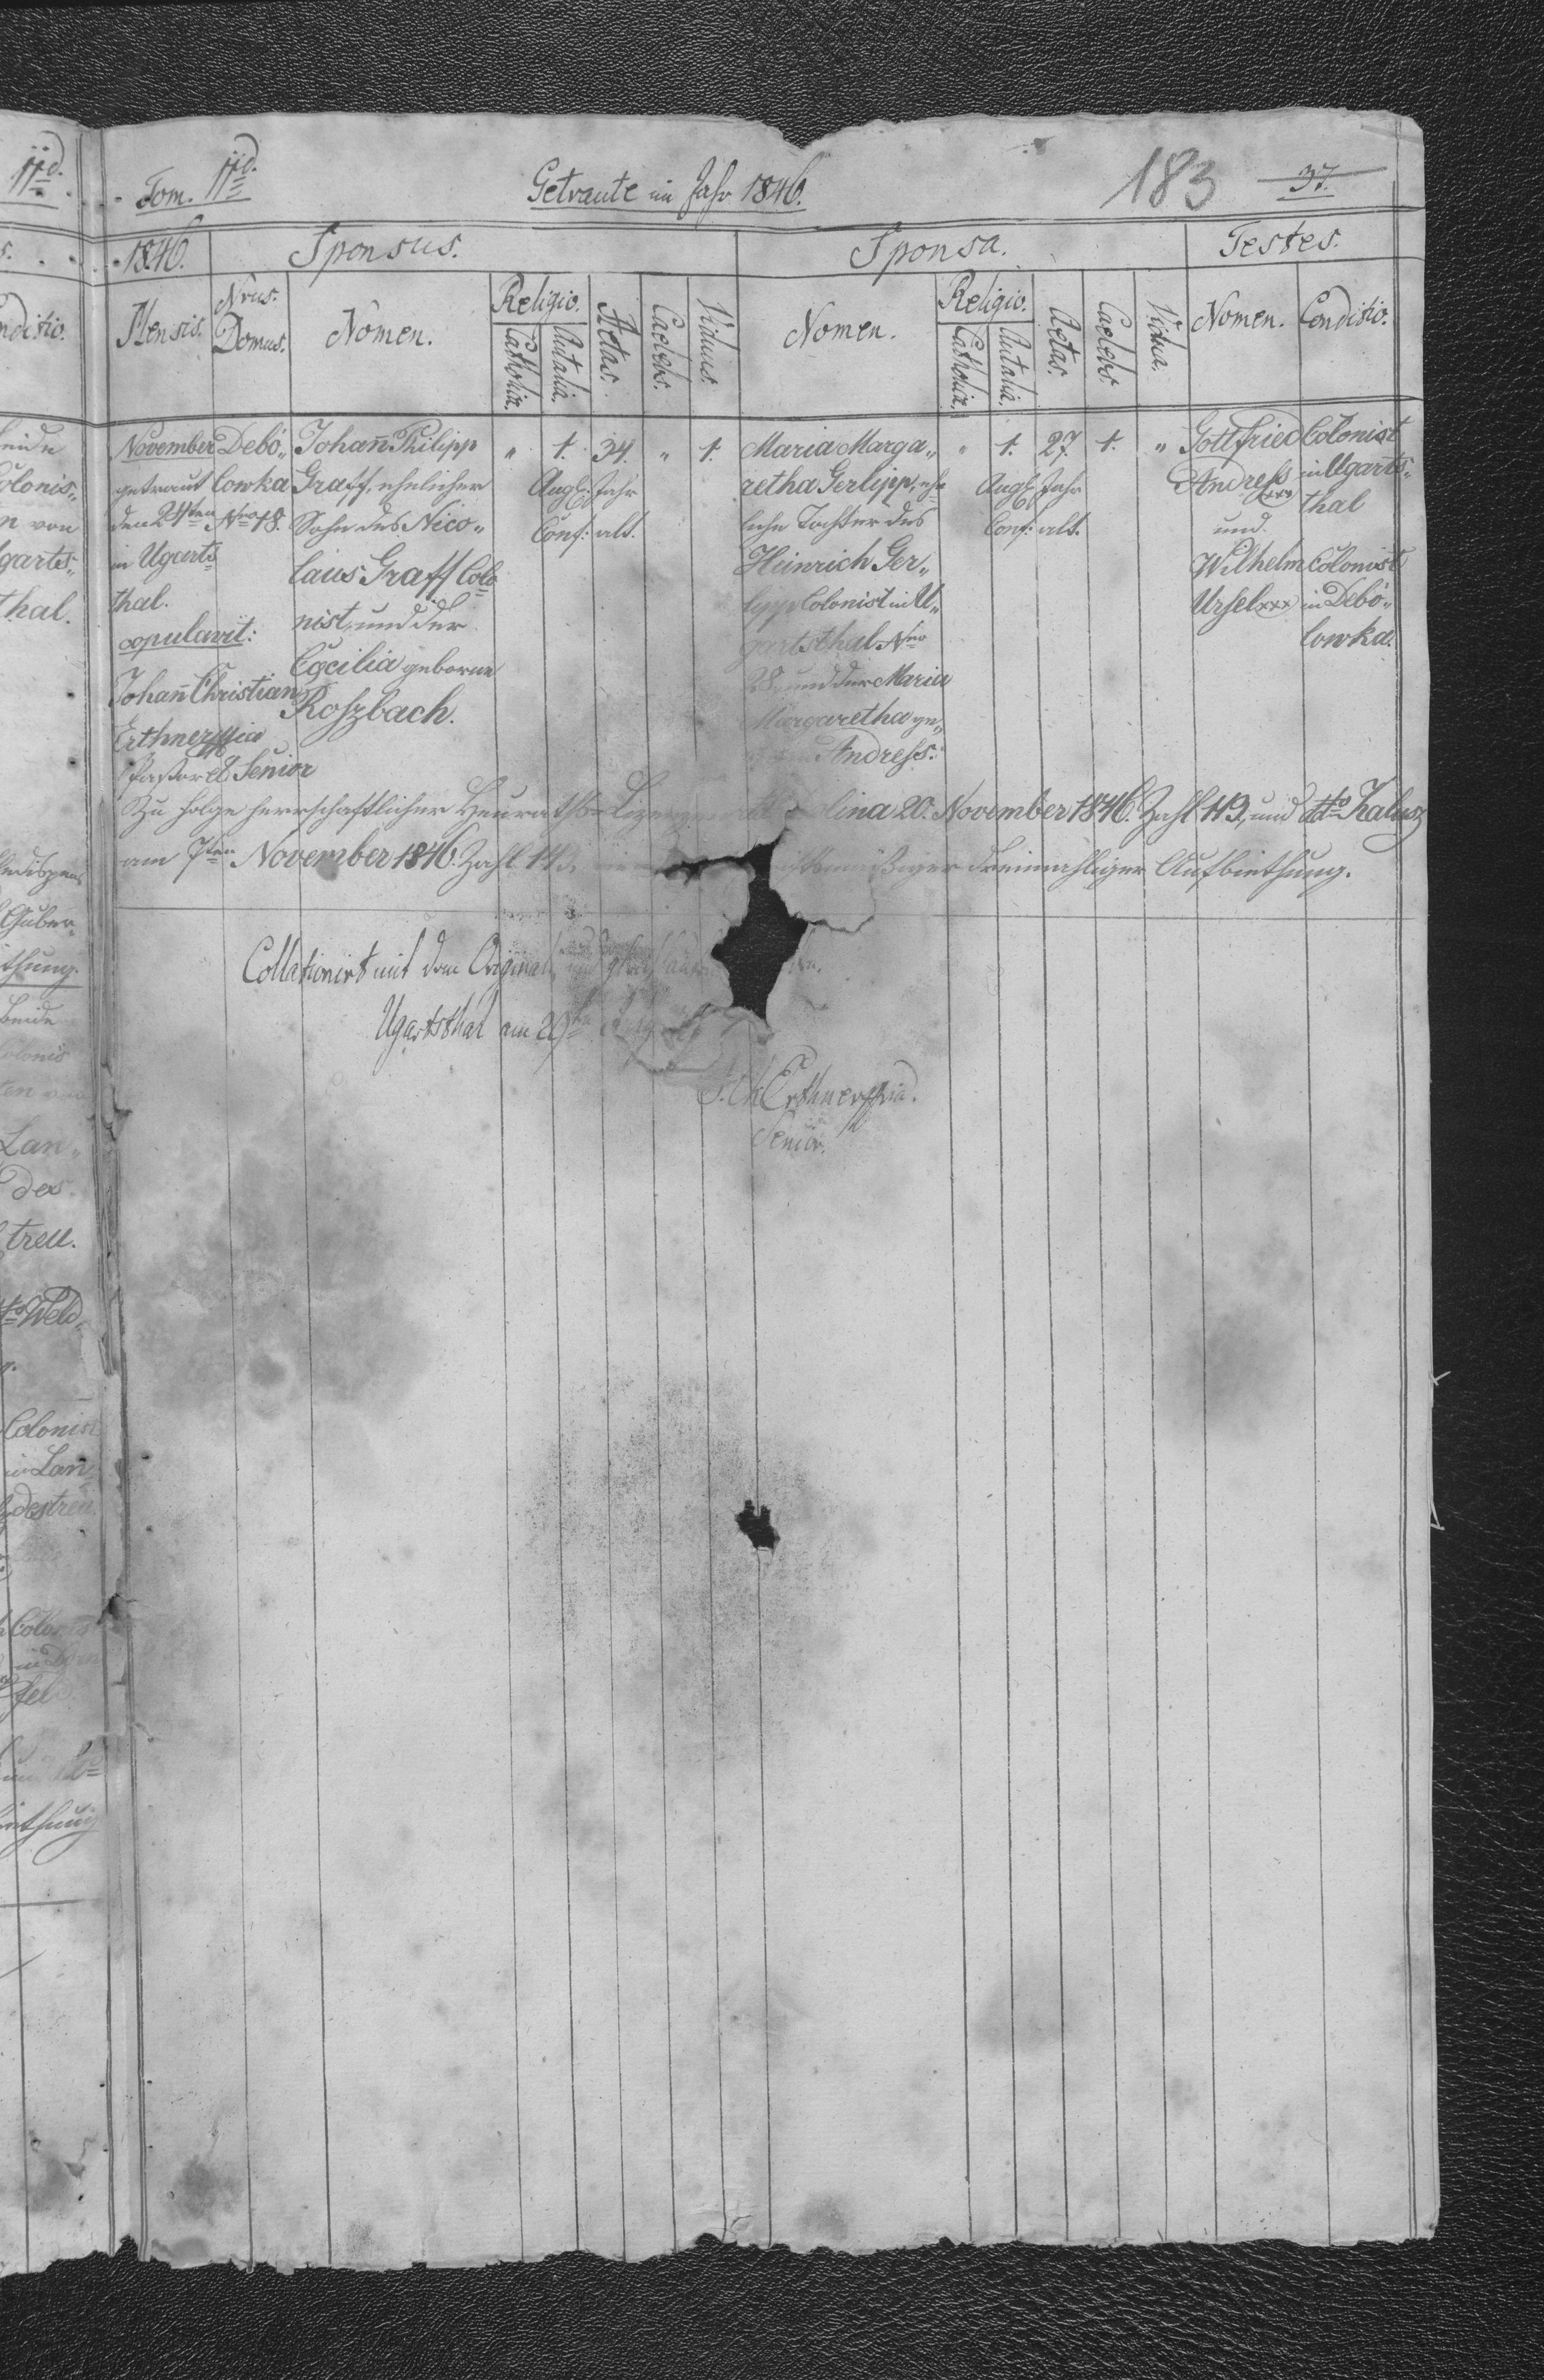 Tom. IId.
Getraute im Jahr 1846.
183
37.
1846.
Sponsus.
Sponsa.
Testes.
Mensis.
Nrus. Domus.
Nomen.
Religio.
Catholica.
Aut alia.
Aetas.
Caelebs.
Viduus.
Nomen.
Religio.
Catholica.
Aut alia.
Aetas.
Caelebs.
Vidua.
Nomen.
Conditio.
November
getraut
den 24ten
in Ugarts
thal.
copulavit:
Johañ Christian
Erthner
Pastor et Senior
Debo„
lowka
Nro 18.
Johañ Philipp
Graff, ehelicher
Sohn des Nico„
laus Graff Colo
nist, und der
Cäcilia geborne
Roszbach.
„
1.
Augb:
Conf:
34.
Jahr
alt.
„
1.
Maria Marga„
retha Gerlipp, ehe
liche Tochter des
Heinrich Ger„
lipp Colonist in U„
gartsthal Nro
28. und der Maria
Margaretha ge„
Andress.
„
1.
Augb:
Conf:
27.
Jahr
alt.
1.
„
Gottfried
Andreß
xxx
und
Wilhelm
Ursel xxx
Colonist
in Ugarts„
thal
Colonist
in Debo„
lowka.
Zu Folge herrschaftlicher Heuraths-Lizenz 20. November 1846. Zahl 119, und dtto Kalusz
am 7ten November 1846. Zahl dreimahliger Aufbiethung.
Collationirt mit dem Original
Ugartsthal am 29ten
J. Ch Erthner
Senior.